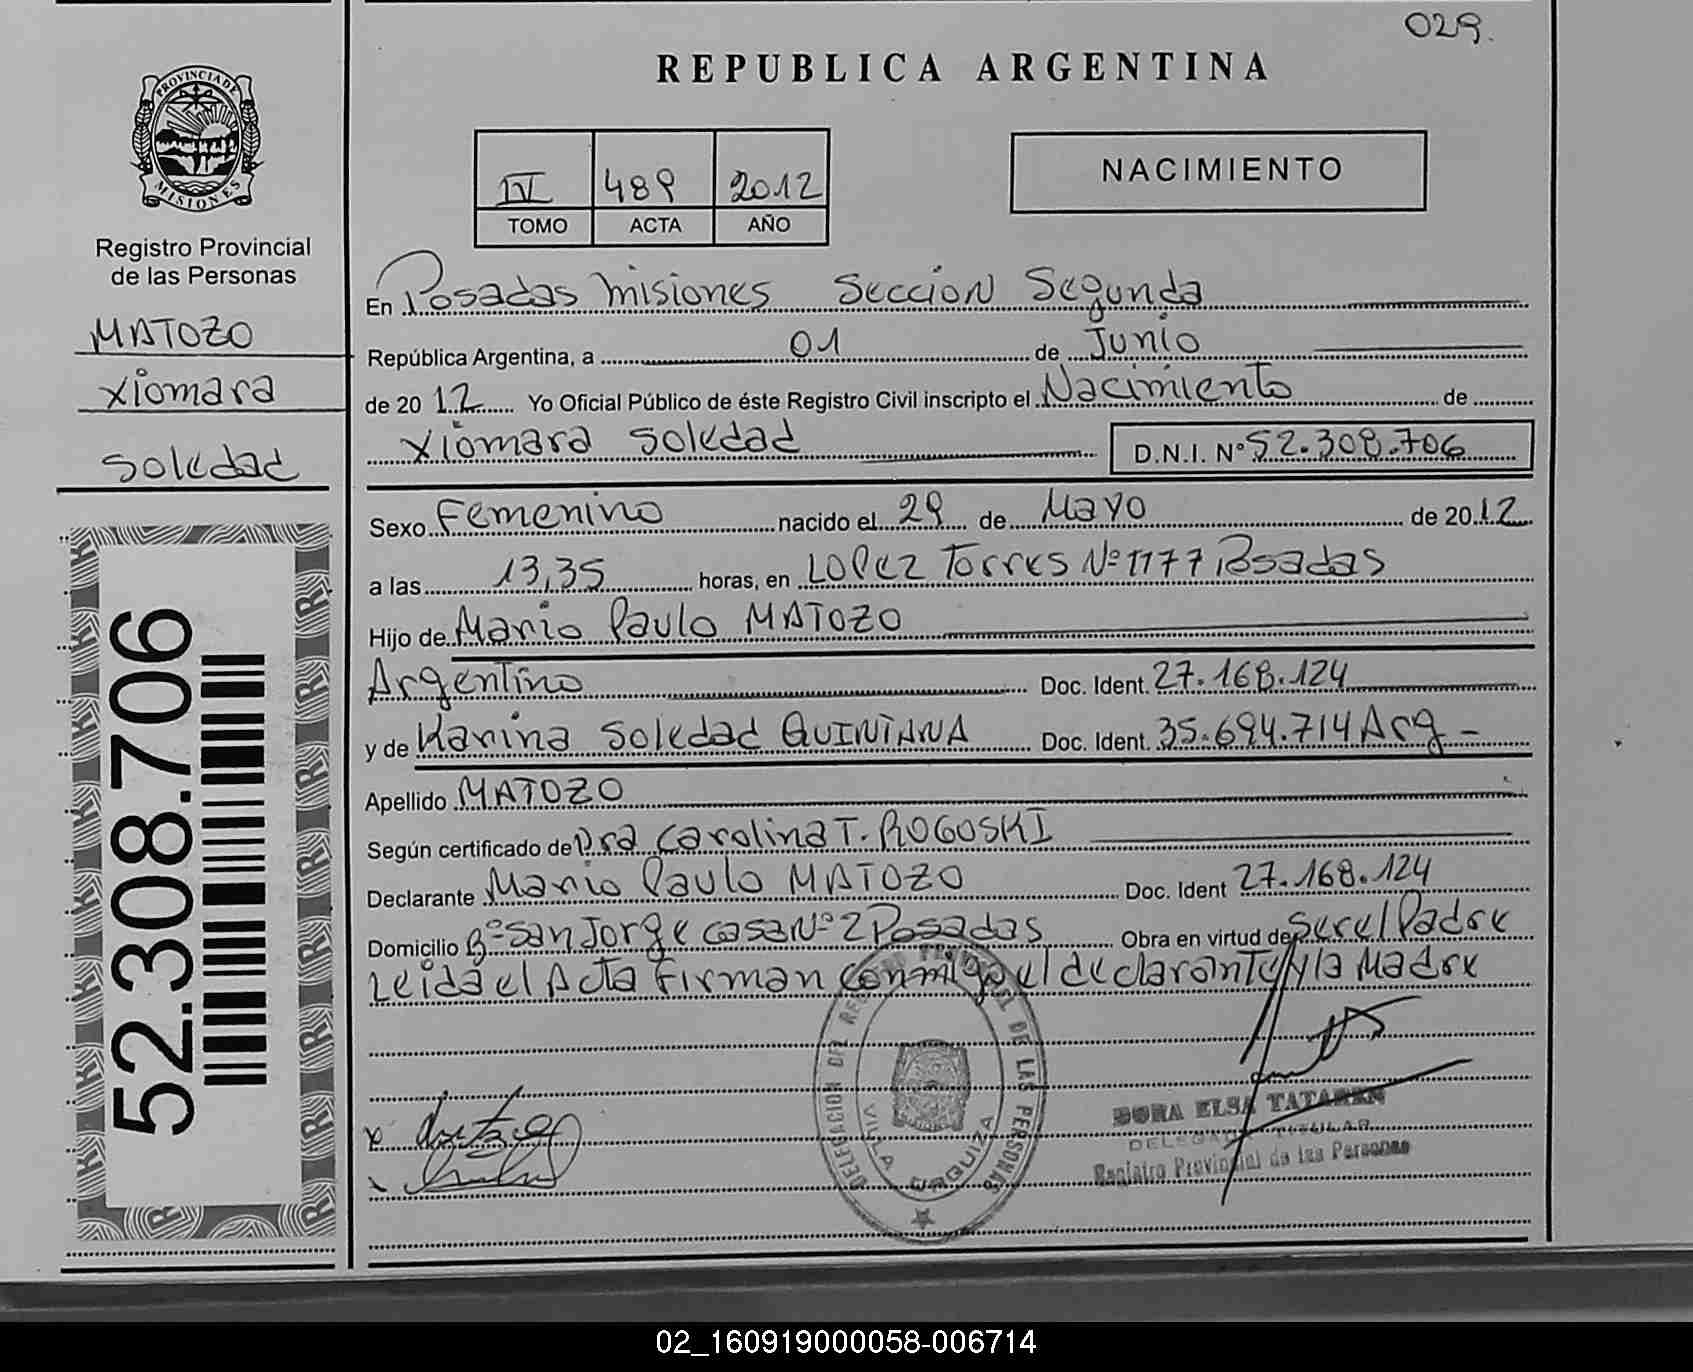 029.
REPUBLICA ARGENTINA
PROVINCIA DE
MISIONES
Registro Provincial
de las Personas
MATOZO
Xiomara
Soledad
52.308.706
IV 489 2012
TOMO ACTA AÑO
NACIMIENTO
En Posadas Misiones Seccion Segunda
República Argentina, a 01 de Junio
de 2012 Yo Oficial Público de éste Registro Civil inscripto el Nacimiento de
Xiomara Soledad D.N.I. Nº 52.308.706
Sexo Femenino nacido el 29 de Mayo de 2012
a las 13,35 horas, en Lopez Torres Nº 1177 Posadas
Hijo de Mario Paulo MATOZO
Argentino Doc. Ident. 27.168.124
y de Karina Soledad QUINTANA Doc. Ident. 35.694.714 Arg -
Apellido MATOZO
Según certificado de Dra Carolina T. ROGOSKI
Declarante Mario Paulo MATOZO Doc. Ident 27.168.124
Domicilio Bº San Jorge casa Nº 2 Posadas Obra en virtud de Ser el Padre
Leida el Acta Firman conmigo el declarante y la Madre
DELEGACION DEL REGISTRO PROVINCIAL DE LAS PERSONAS
VILLA URQUIZA
DORA ELSA TATAREN
DELEGADA TITULAR
Registro Provincial de las Personas
02_160919000058-006714